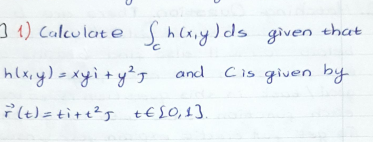 3 1) Calculate ∫_C h(x,y)ds given that
h(x,y) = xyi + y²j and C is given by
r⃗(t) = ti + t²j t∈[0,1].